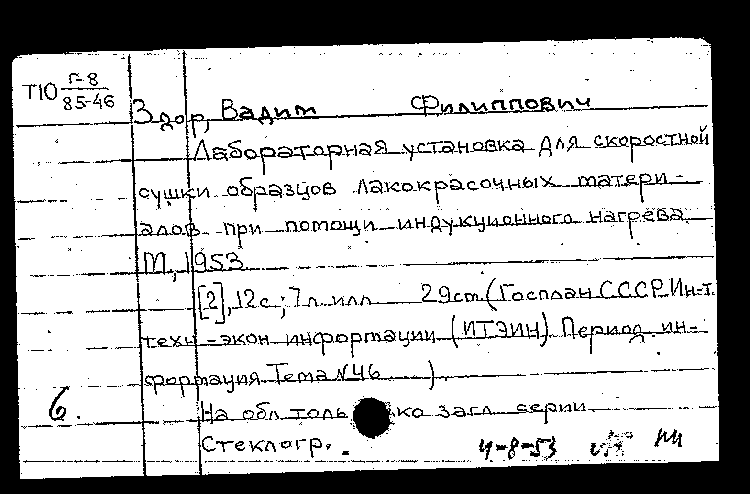 Т10 Г-8
85-46
Здор, Вадим Филиппович
Лабораторная установка для скоростной
сушки образцов лакокрасочных матери-
алов при помощи индукционного нагрева
М., 1953
[2], 12с.; 7л. илл 29см (Госплан СССР. Ин-т.
техн-экон информации (ИТЭИН) Период. ин-
формация Тема №46 ).
6.
На обл толь ко загл серии
Стеклогр.
4-8-53